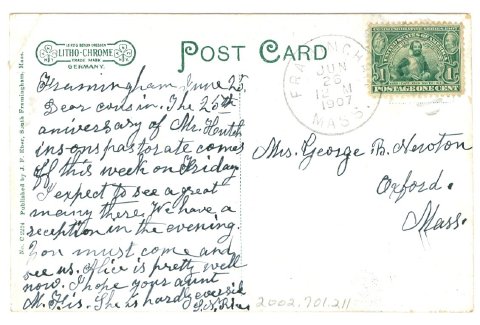 LITHO-CHROME
TRADE MARK
GERMANY.
POST CARD
No. C 2224 Published by J. F. Eber, South Framingham, Mass.
FRAMINGHAM
JUN
25
M
1907
MASS.
POSTAGE ONE CENT
1
Framingham June 25.
Dear cousin. The 25th
aniversary of Mr. Hutch
ins-ons pastorate comes
off this week on Friday
I expect to see a great
many there. We have a
reception in the evening.
You must come and
see us. Alice is pretty well
now. I hope yours aunt
M. His. She is hardy
Mrs. George B. Newton
Oxford.
Mass.
2002.701.211